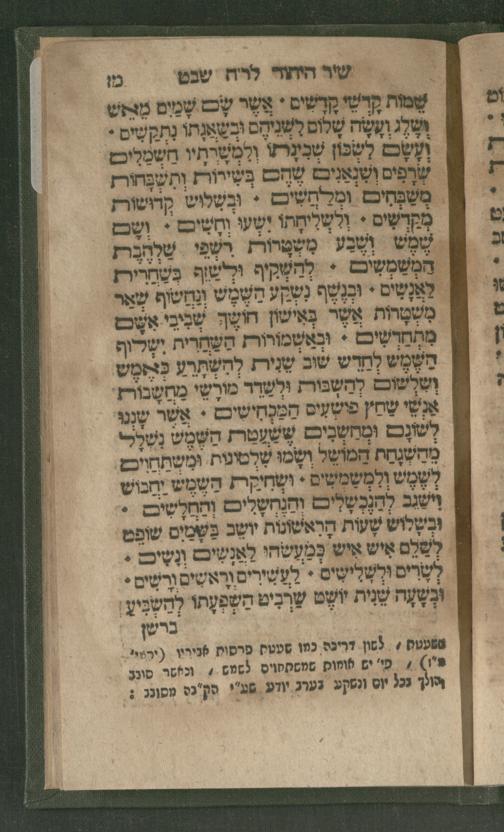 שיר היחוד לר״ח שבט מז
שֵׁמוֹת קָדְשֵׁי קָדָשִׁים • אֲשֶׁר שָׂם שָׁמַיִם מֵאֵשׁ
וָשֶׁלֶג וְעָשָׂה שָׁלוֹם לִשְׁנֵיהֶם וּבְשַׁאֲגָתוֹ נִתְקָשִׁים •
וְעָשָׂם לִשְׁכּוֹן שְׁכִינָתוֹ וְלִמְשָׁרְתָיו חַשְׁמַלִּים
שְׂרָפִים וְשִׁנְאַנִּים שֶׁהֵם בְּשִׁירוֹת וְתִשְׁבָּחוֹת
מְשַׁבְּחִים וּמְלַחֲשִׁים • וּבְשָׁלוֹשׁ קְדוּשׁוֹת
מַקְדִּשִׁים • וְלִשְׁלִיחָתוֹ יִשְׁעוּ וְחָשִׁים • וְשָׂם
שֶׁמֶשׁ וְשֶׁבַע מִשְׁטָרוֹת רִשְׁפֵּי שַׁלְהֶבֶת
הַמְשַׁמְּשִׁים • לְהַשְׁקִיף וְלִישְׁזֹף בְּשַׁחֲרִית
לַאֲנָשִׁים • וּבְנֶשֶׁף נִשְׁקַע הַשֶּׁמֶשׁ וְנַחְשׂוֹף שְׁאָר
מִשְׁטָרוֹת אֲשֶׁר בְּאִישׁוֹן חוֹשֶׁךְ שְׁבִיבֵי אִשָּׁם
מִתְחַדְּשִׁים • וּבְאַשְׁמוֹרוֹת הַשַּׁחֲרִית יִשְׁלוֹף
הַשֶּׁמֶשׁ לְחַדֵּשׁ שׁוּב שֵׁנִית לְהִשְׂתָּרֵעַ כְּאֶמֶשׁ
וְשִׁלְשׁוֹם לְהַשְׁבּוֹת וּלְשַׁדֵּד מוֹרָשֵׁי מַחְשְׁבוֹת
אַנְשֵׁי שַׁחַץ פּוֹשְׁעִים הַמַּכְחִישִׁים • אֲשֶׁר שָׁנְנוּ
לְשׁוֹנָם וּמְחַשְּׁבִים שֶׁשַּׁעֲטַת הַשֶּׁמֶשׁ נִשְׁלָל
מֵהַשְׁגָּחַת הַמּוֹשֵׁל וְשָׂמוּ שִׁלְטוֹנוּת וּמִשְׁתַּחֲוִים
לְשֶׁמֶשׁ וְלִמְשַׁמְּשִׁים • וּשְׁחִיקַת הַשֶּׁמֶשׁ יַחֲבוֹשׁ
וִישַׂגֵּב לְהַנִּכְשָׁלִים וְהַנֶּחְשָׁלִים וְהַחֲלָשִׁים •
וּבְשָׁלוֹשׁ שָׁעוֹת הָרִאשׁוֹנוֹת יוֹשֵׁב בַּשָּׁמַיִם שׁוֹפֵט
לְשַׁלֵּם אִישׁ אִישׁ כְּמַעֲשֵׂהוּ לַאֲנָשִׁים וְנָשִׁים •
לְשָׂרִים וּלְשָׁלִישִׁים • לַעֲשִׁירִים וְרָאשִׁים וְרָשִׁים •
וּבְשָׁעָה שֵׁנִית יוֹשֵׁט שַׁרְבִיט הַשְׁפָּעָתוֹ לְהַשְׂבִּיעַ
ברשן
ששעטת , לשון דריכה כמו שעטת פרסות אביריו (ירמי׳
מ״ז) , פי׳ יש אומות שמשתחוים לשמש , וכאשר סובב
והולך בכל יום ונשקע בערב יודע שע״י הקב״ה מסובב :